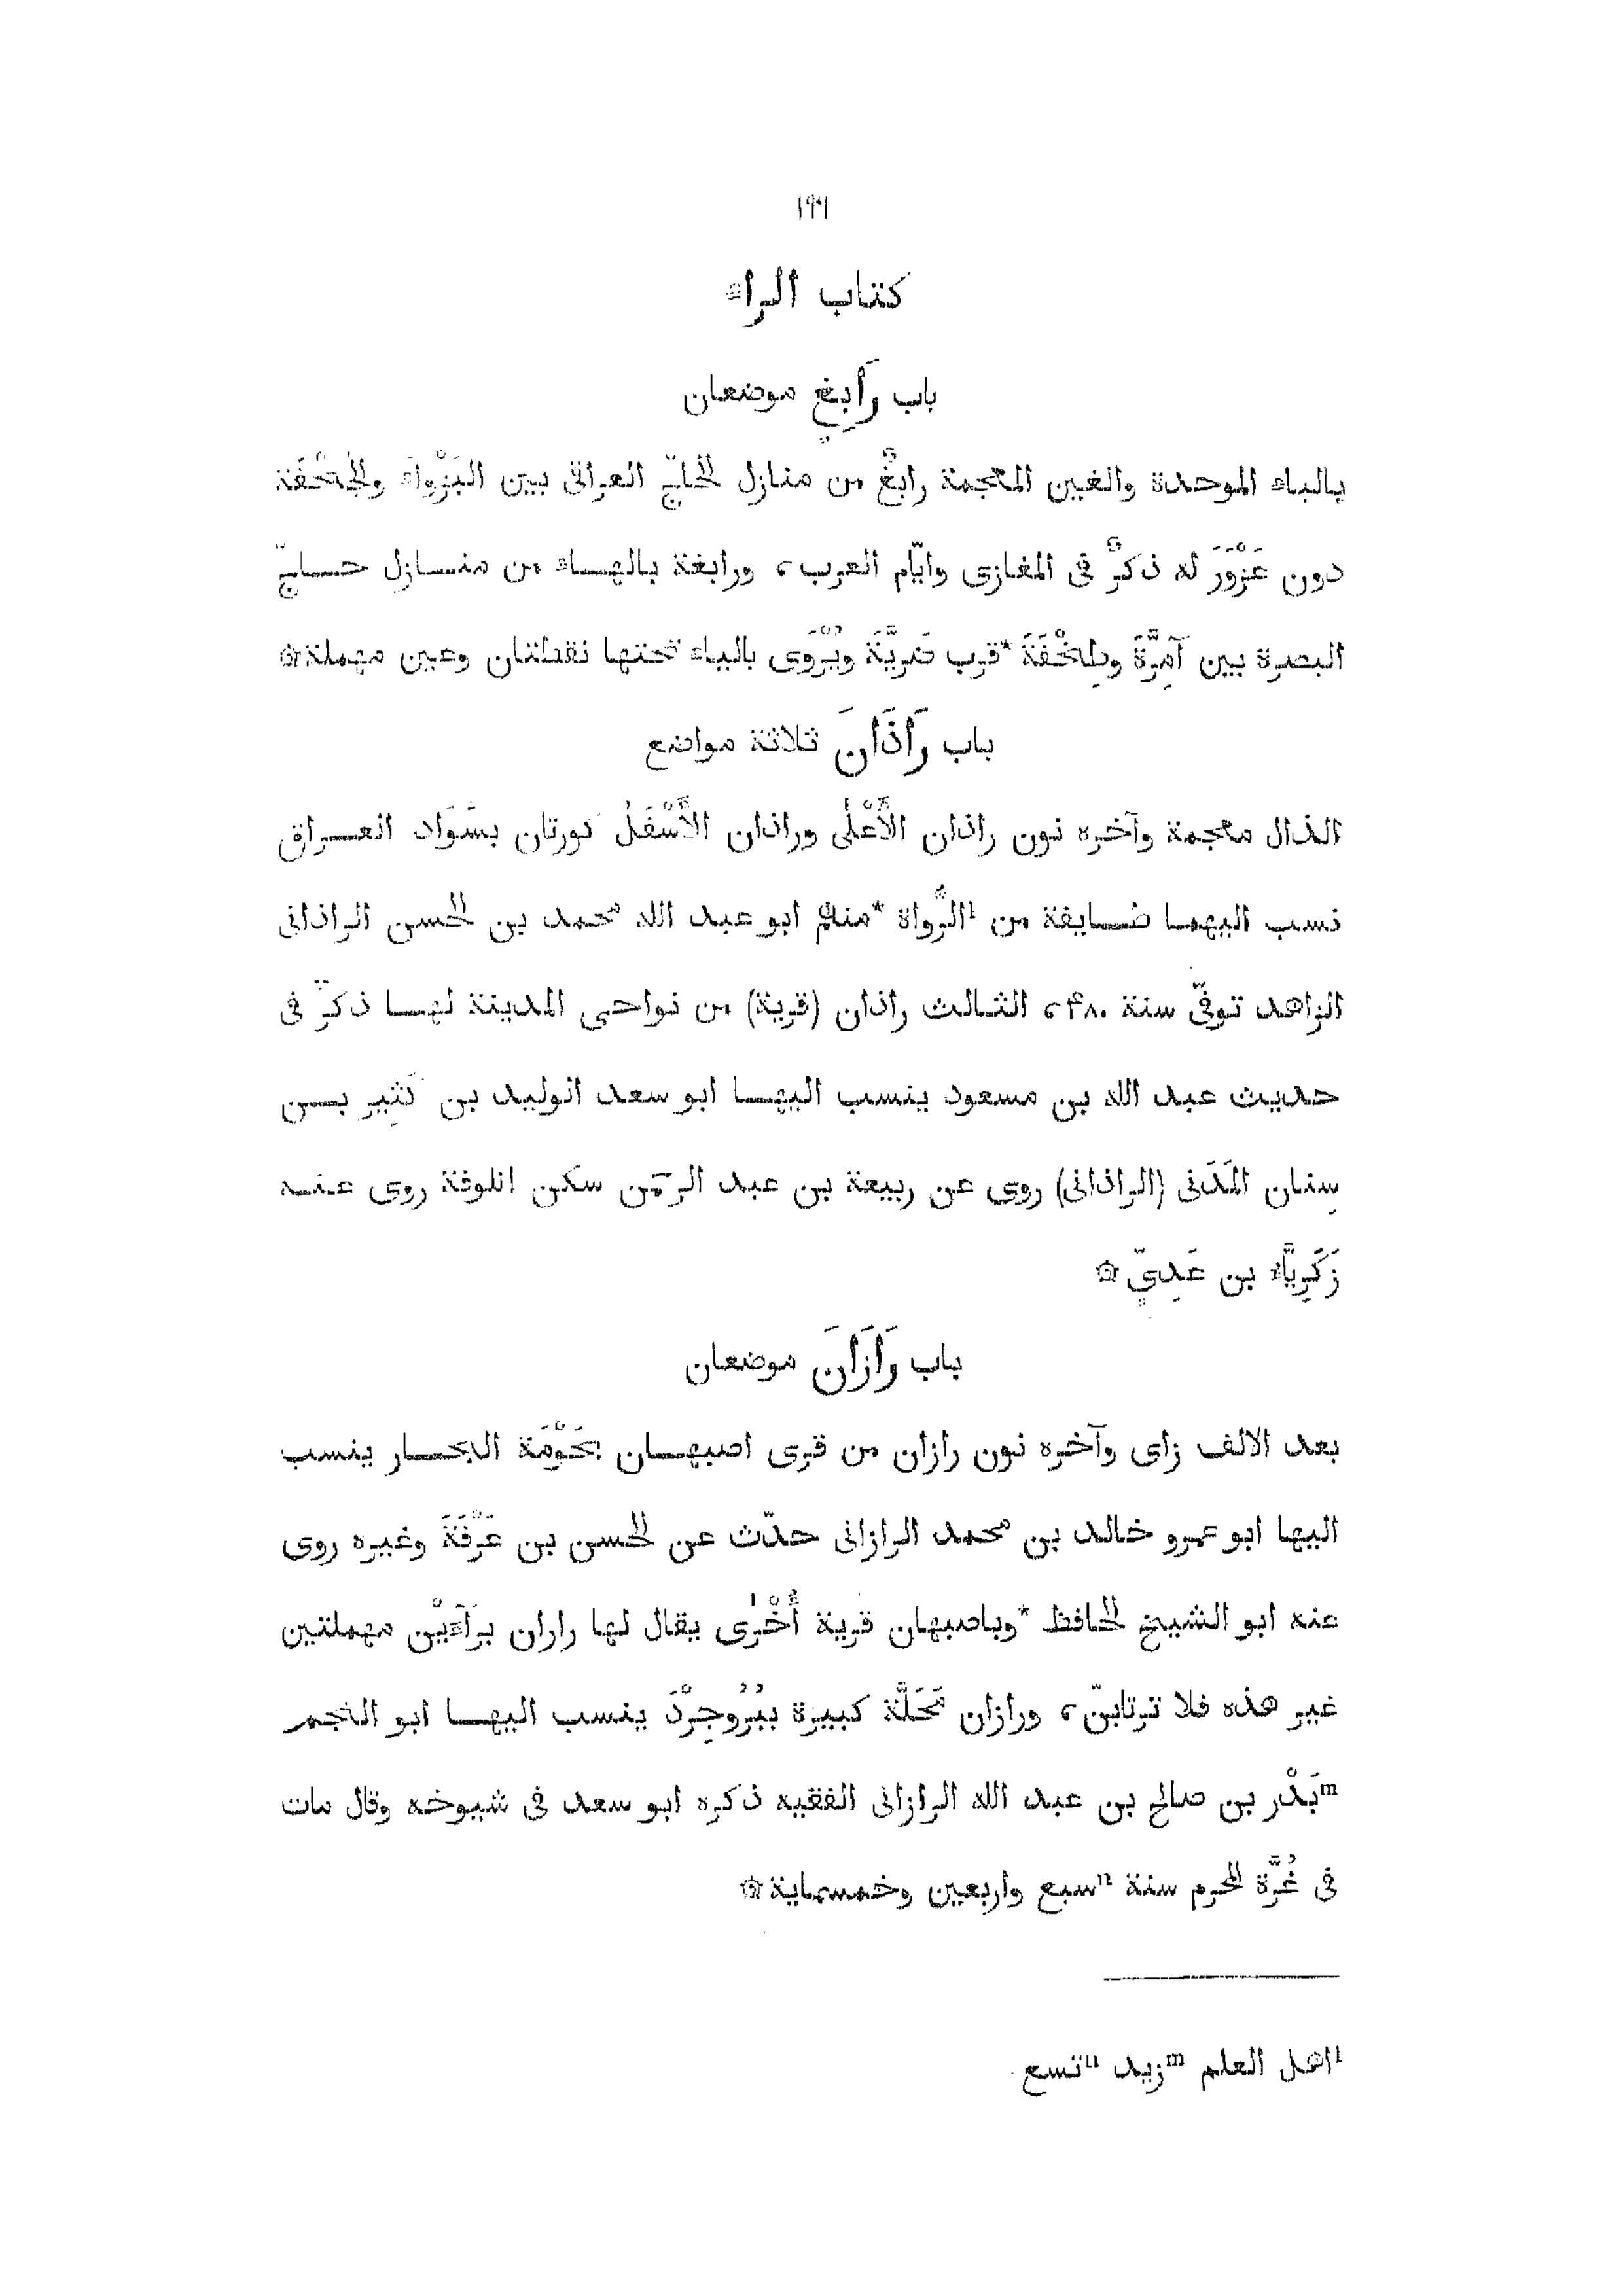 ١٩٩
كتاب الراء
باب رَابِغٍ موضعان
بالباء الموحدة والغين المعجمة رابغٌ من منازل الحاجّ العراق بين البَزْواء والجُحْفَة
دون عَزْوَرَ له ذكرٌ فى المغازى وايّام العرب، ورابغة بالهاء من منازل حاجّ
البصرة بين اَمِرَّةَ وطِخْفَةَ *قرب ضَرِيَّةَ ويُرْوَى بالياء تحتها نقطتان وعين مهملة۞
باب رَاذَانَ ثلاثة مواضع
الذال معجمة وآخره نون راذان الأَعْلَى وراذان الأَسْفَلُ كورتان بسَوَاد العراق
نسب اليهما طايفة من ¹الرُّواة *منهم ابو عبد الله محمد بن الحسن الراذانى
الزاهد توفّى سنة ۴۸۰، الثالث راذان (قرية) من نواحى المدينة لها ذكرٌ فى
حديث عبد الله بن مسعود ينسب اليها ابو سعد الوليد بن كَثِير بن
سِنان المَدَنى (الراذانى) روى عن ربيعة بن عبد الرحمن سكن الكوفة روى عنه
زَكَرِيَّاء بن عَدِىٍّ ۞
باب رَازَانَ موضعان
بعد الالف زاى وآخره نون رازان من قرى اصبهان بحَوْمَة النجار ينسب
اليها ابو عمرو خالد بن محمد الرازانى حدّث عن الحسن بن عَرَفَةَ وغيره روى
عنه ابو الشيخ الحافظ *وباصبهان قرية أُخْرَى يقال لها راران برَاءَيْن مهملتين
غير هذه فلا ترتابنّ، ورازان مَحَلَّة كبيرة ببُرُوجِرْدَ ينسب اليها ابو النجم
ᵐبَدْر بن صالح بن عبد الله الرازانى الفقيه ذكره ابو سعد فى شيوخه وقال مات
فى غُرَّة المحرم سنة ⁿسبع واربعين وخمسماية۞
¹اهل العلم ᵐزيد ⁿتسع